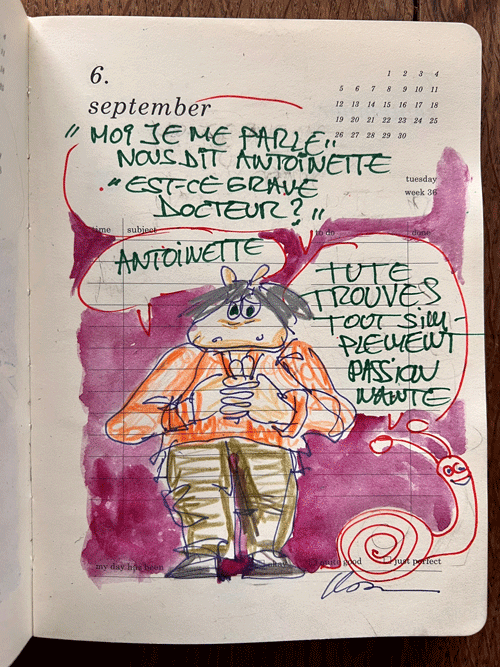 6.
september
1 2 3 4
5 6 7 8 9 10 11
12 13 14 15 16 17 18
19 20 21 22 23 24 25
26 27 28 29 30
tuesday
week 36
" MOI JE ME PARLE "
NOUS DIT ANTOINETTE
" EST-CE GRAVE
DOCTEUR ? "
time subject to do done
ANTOINETTE
TU TE
TROUVES
TOUT SIM-
PLEMENT
PASSION
NANTE
my day has been good just perfect